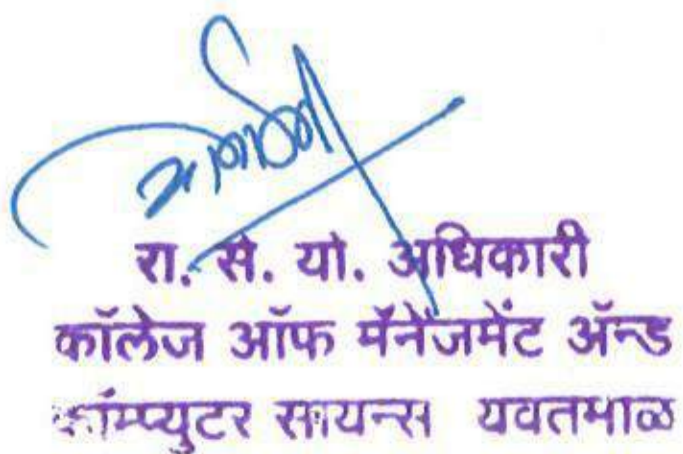 रा. से. यो. अधिकारी
कॉलेज ऑफ मॅनेजमेंट ॲन्ड
कॉम्प्युटर सायन्स यवतमाळ